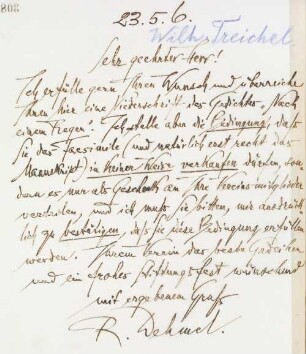 808
23.5.6.
Wilh. Treichel
Sehr geehrter Herr!
Ich erfülle gern Ihren Wunsch und überreiche
Ihnen hier eine Niederschrift des Gedichtes „Nach
einem Regen“. Ich stelle aber die Bedingung, daß
Sie das Facsimile (und natürlich erst recht das
Manuskript) in keiner Weise verkaufen dürfen, son
dern es nur als Geschenk an Ihre Vereinsmitglieder
verteilen, und ich muß Sie bitten, mir ausdrück
lich zu bestätigen, daß Sie diese Bedingung erfüllen
werden. Ihrem Verein das beste Gedeihen
und ein frohes Stiftungsfest wünschend
mit ergebenem Gruß
R. Dehmel.